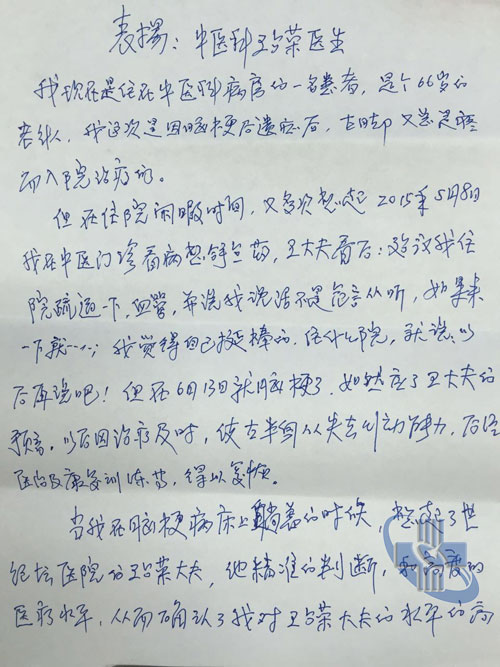 表扬：中医科卫荣医生
我现在是住在中医科病房的一名患者，是个66岁的
老病人，我这次是因脑梗后遗症后，右脚又总是
而入院治疗的。
但在住院闲暇时间，又多次想起2015年5月8日
我在中医门诊看病想拿点药，卫大夫看后：建议我住
院疏通一下，血管，并说我说话不是危言从听，如果来
一下就……我觉得自己挺棒的，住什么院，就说：以
后再说吧！但在6月13日就脑梗了，如然应了卫大夫的
预言，以后因治疗及时，使右半身从失去动能力，后经
医治及康复训练等，得以恢复。
当我在脑梗病床上躺着的时候，想起了世
纪坛医院的卫荣大夫，他精准的判断，和高度的
医疗水平，从而确认了我对卫荣大夫的水平的病